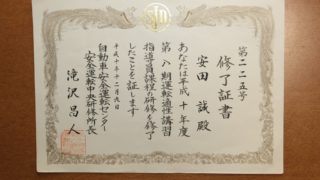 第二二五号
修了証書
安田誠殿
あなたは平成十年度
第八期運転適性講習
指導員課程の研修を修了
したことを証します
平成十年十二月九日
自動車安全運転センター
安全運転中央研修所長
滝沢昌人